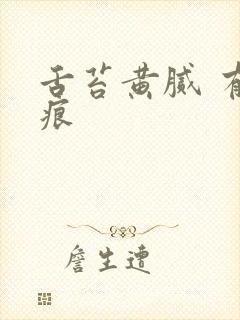 舌苔黄腻
痕
詹生遭